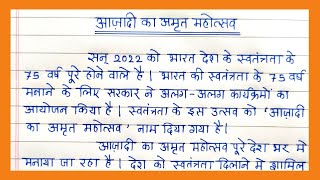 आज़ादी का अमृत महोत्सव
सन् 2022 को भारत देश के स्वतंत्रता के
75 वर्ष पूरे होने वाले है । भारत की स्वतंत्रता के 75 वर्ष
मनाने के लिए सरकार ने अलग-अलग कार्यक्रमों का
आयोजन किया है । स्वतंत्रता के इस उत्सव को 'आज़ादी
का अमृत महोत्सव' नाम दिया गया है ।
आज़ादी का अमृत महोत्सव पूरे देश भर में
मनाया जा रहा है । देश को स्वतंत्रता दिलाने में शामिल